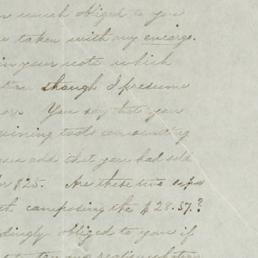 much obliged to you
taken with my
in your note which
though I presume
You say that you
mining tools consisting
and that you had sold
for $25. Are these two
composing the $28.37.?
obliged to you if